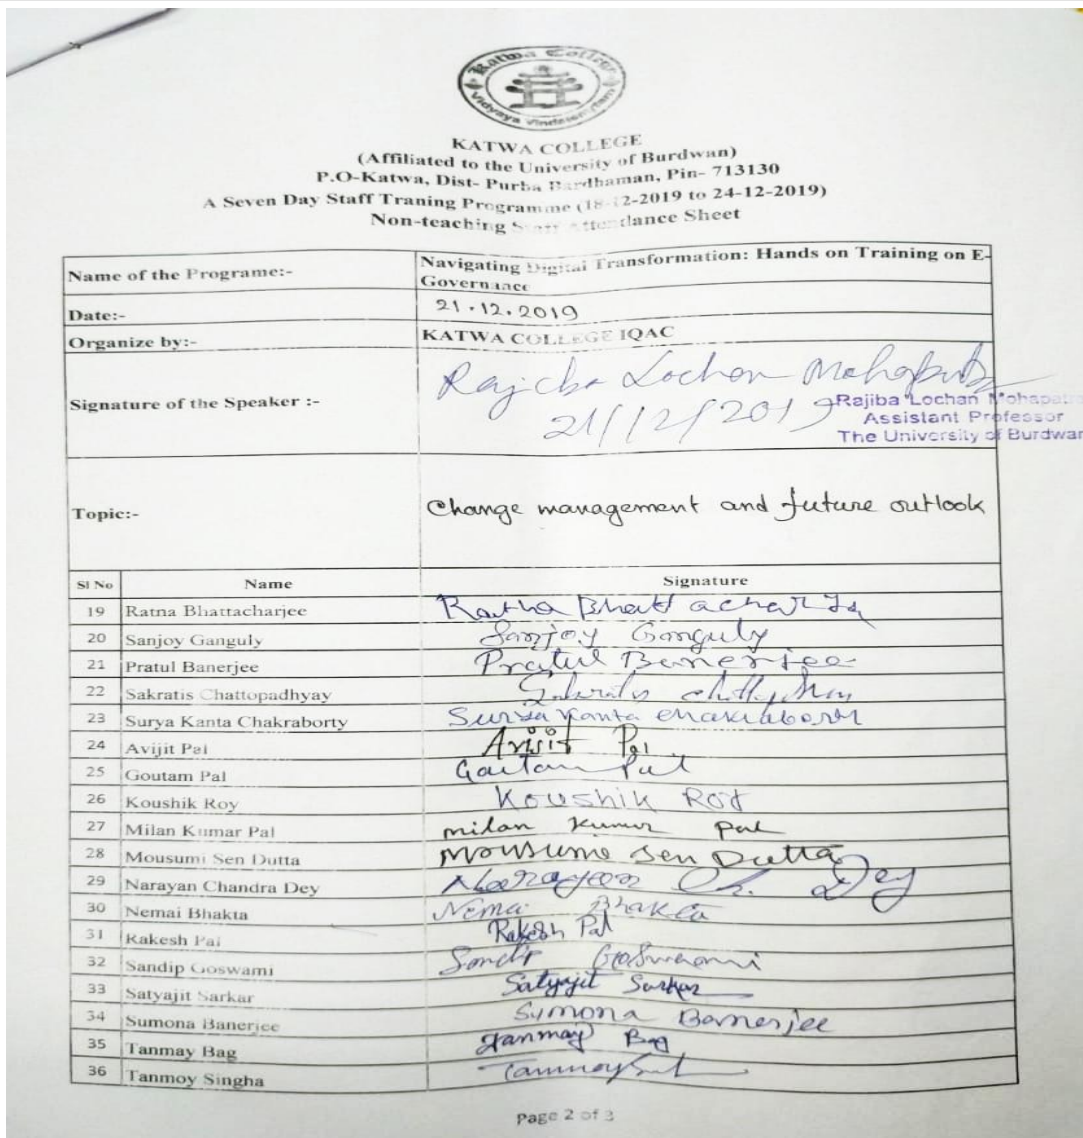 Katwa College
Vidyaya Vindate
KATWA COLLEGE
(Affiliated to the University of Burdwan)
P.O-Katwa, Dist- Purba Bardhaman, Pin- 713130
A Seven Day Staff Traning Programme (18-12-2019 to 24-12-2019)
Non-teaching Staff Attendance Sheet
Name of the Programe:- Navigating Digital Transformation: Hands on Training on E-
Governance
Date:- 21.12.2019
Organize by:- KATWA COLLEGE IQAC
Signature of the Speaker :- Rajiba Lochan Mohapatra
21/12/2019
Rajiba Lochan Mohapatra
Assistant Professor
The University of Burdwan
Topic:- Change management and future outlook
Sl No Name Signature
19 Ratna Bhattacharjee Ratna Bhattacharjee
20 Sanjoy Ganguly Sanjoy Ganguly
21 Pratul Banerjee Pratul Banerjee
22 Sakratis Chattopadhyay
23 Surya Kanta Chakraborty Surya Kanta Chakraborty
24 Avijit Pal Avijit Pal
25 Goutam Pal Goutam Pal
26 Koushik Roy Koushik Roy
27 Milan Kumar Pal milan kumar pal
28 Mousumi Sen Dutta Mousumi Sen Dutta
29 Narayan Chandra Dey Narayan Ch. Dey
30 Nemai Bhakta Nemai Bhakta
31 Rakesh Pal Rakesh Pal
32 Sandip Goswami Sandip Goswami
33 Satyajit Sarkar Satyajit Sarkar
34 Sumona Banerjee Sumona Banerjee
35 Tanmay Bag Tanmay Bag
36 Tanmoy Singha Tanmoy
Page 2 of 3